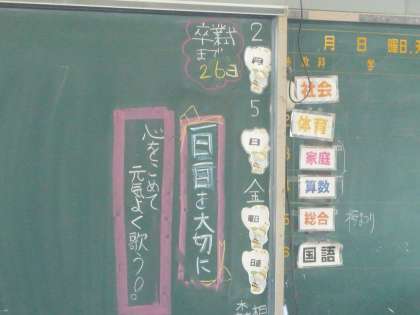 月 日 曜日
教科
社会
体育
家庭
算数
総合
国語
2
月
5
日
金
曜日
日直
卒業式
まで
26日
一日一日を大切に
心をこめて
元気よく歌う。